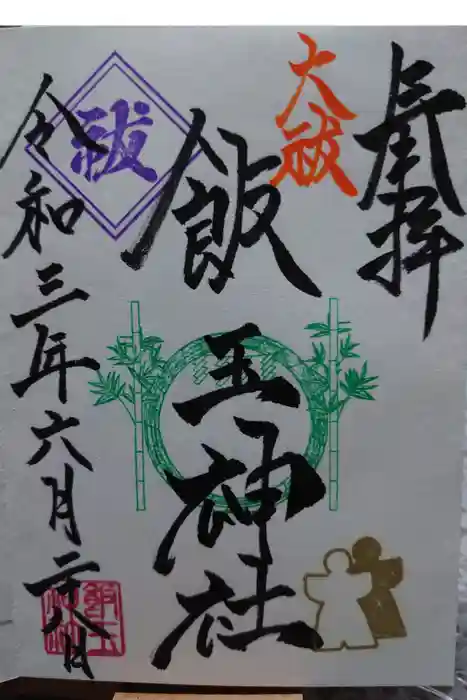 奉拝
大祓
飯玉神社
祓
令和三年六月二十八日